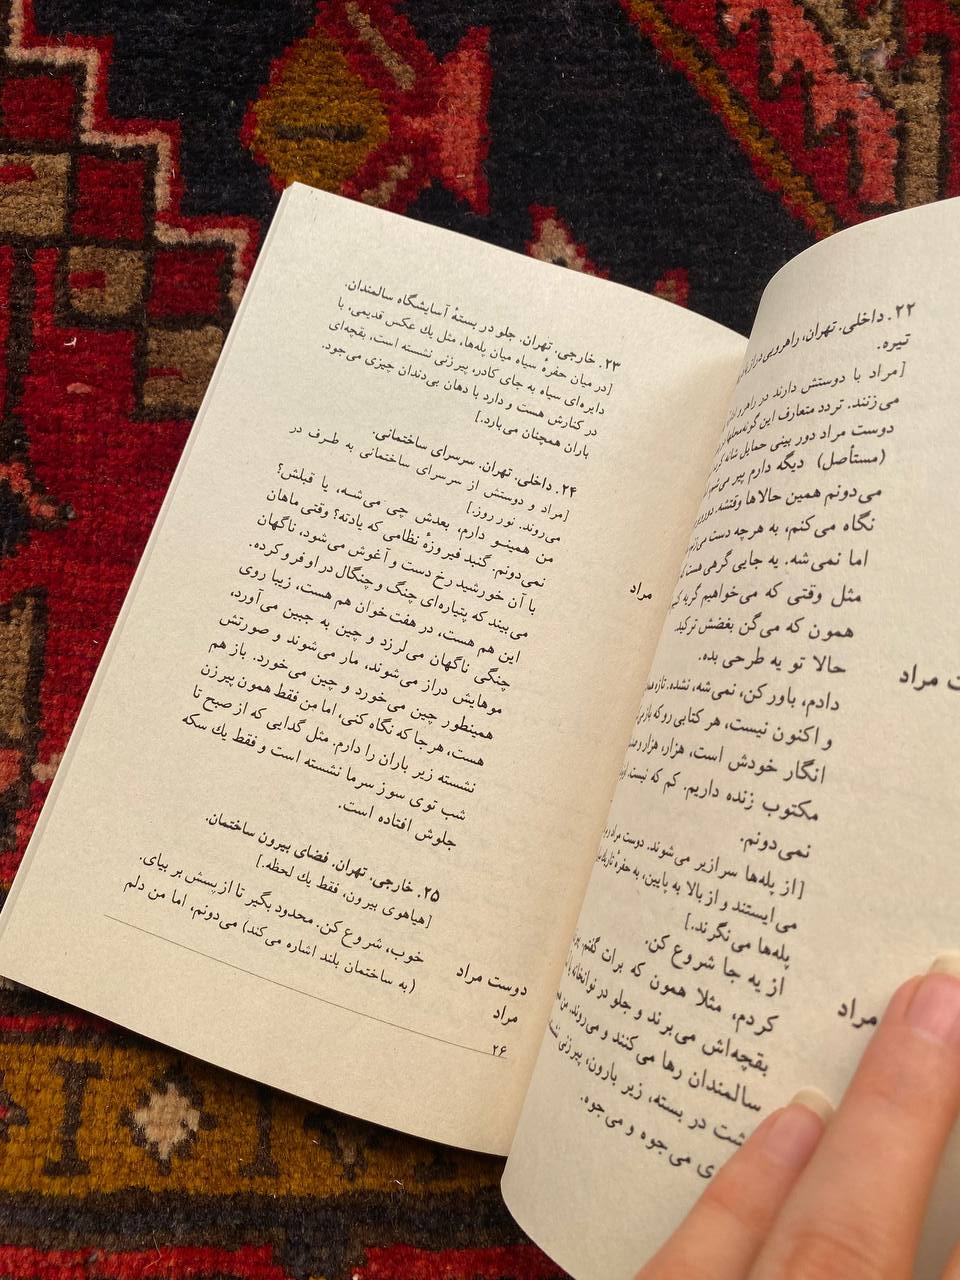 ۲۲. داخلی. تهران، راهرویی دراز
تیره.
[مراد با دوستش دارند در راهرو
می‌زنند. تردد متعارف این گونه محلها
دوست مراد دور بینی حمایل شانه
(مستأصل) دیگه دارم پیر می‌شم
می‌دونم همین حالاها وقتشه.
نگاه می‌کنم، به هرچه دست می‌زنم
اما نمی‌شه. یه جایی گرهی هست
مثل وقتی که می‌خواهیم گریه
همون که می‌گن بغضش ترکید.
ت مراد حالا تو یه طرحی بده.
دادم، باور کن، نمی‌شه، نشده. تازه
و اکنون نیست، هر کتابی رو که باز
انگار خودش است، هزار، هزار و
مکتوب زنده داریم. کم که نیست.
نمی‌دونم.
[از پله‌ها سرازیر می‌شوند. دوست مراد
می‌ایستند و از بالا به پایین، به حفرهٔ تاریک
پله‌ها می‌نگرند.]
از یه جا شروع کن.
مراد کردم، مثلا همون که برات گفتم،
بقچه‌اش می‌برند و جلو در نوانخانه یا
سالمندان رها می‌کنند و می‌روند.
شت در بسته، زیر بارون، پیرزنی
ی می‌جوه و می‌جوه.
۲۳. خارجی. تهران. جلو در بستهٔ آسایشگاه سالمندان.
[در میان حفرهٔ سیاه میان پله‌ها، مثل یك عکس قدیمی، با
دایره‌ای سیاه به جای کادر، پیرزنی نشسته است، بقچه‌ای
در کنارش هست و دارد با دهان بی‌دندان چیزی می‌جود.
باران همچنان می‌بارد.]
۲۴. داخلی. تهران. سرسرای ساختمانی.
[مراد و دوستش از سرسرای ساختمانی به طرف در
می‌روند. نور روز.]
مراد من همینو دارم، بعدش چی می‌شسه، یا قبلش؟
نمی‌دونم. گنبد فیروزهٔ نظامی که یادته؟ وقتی ماهان
با آن خورشید رخ دست و آغوش می‌شود، ناگهان
می‌بیند که پتیاره‌ای چنگ و چنگال در او فرو کرده.
این هم هست، در هفت‌خوان هم هست، زیبا روی
چنگی ناگهان می‌لرزد و چین به جبین می‌آورد،
موهایش دراز می‌شوند، مار می‌شوند و صورتش
همینطور چین می‌خورد و چین می‌خورد. باز هم
هست، هرجا که نگاه کنی، اما من فقط همون پیرزن
نشسته زیر باران را دارم. مثل گدایی که از صبح تا
شب توی سوز سرما نشسته است و فقط یك سکه
جلوش افتاده است.
۲۵. خارجی. تهران. فضای بیرون ساختمان.
[هیاهوی بیرون، فقط یك لحظه.]
دوست مراد خوب، شروع کن. محدود بگیر تا از پسش بر بیای.
مراد (به ساختمان بلند اشاره می‌کند) می‌دونم، اما من دلم
۲۶